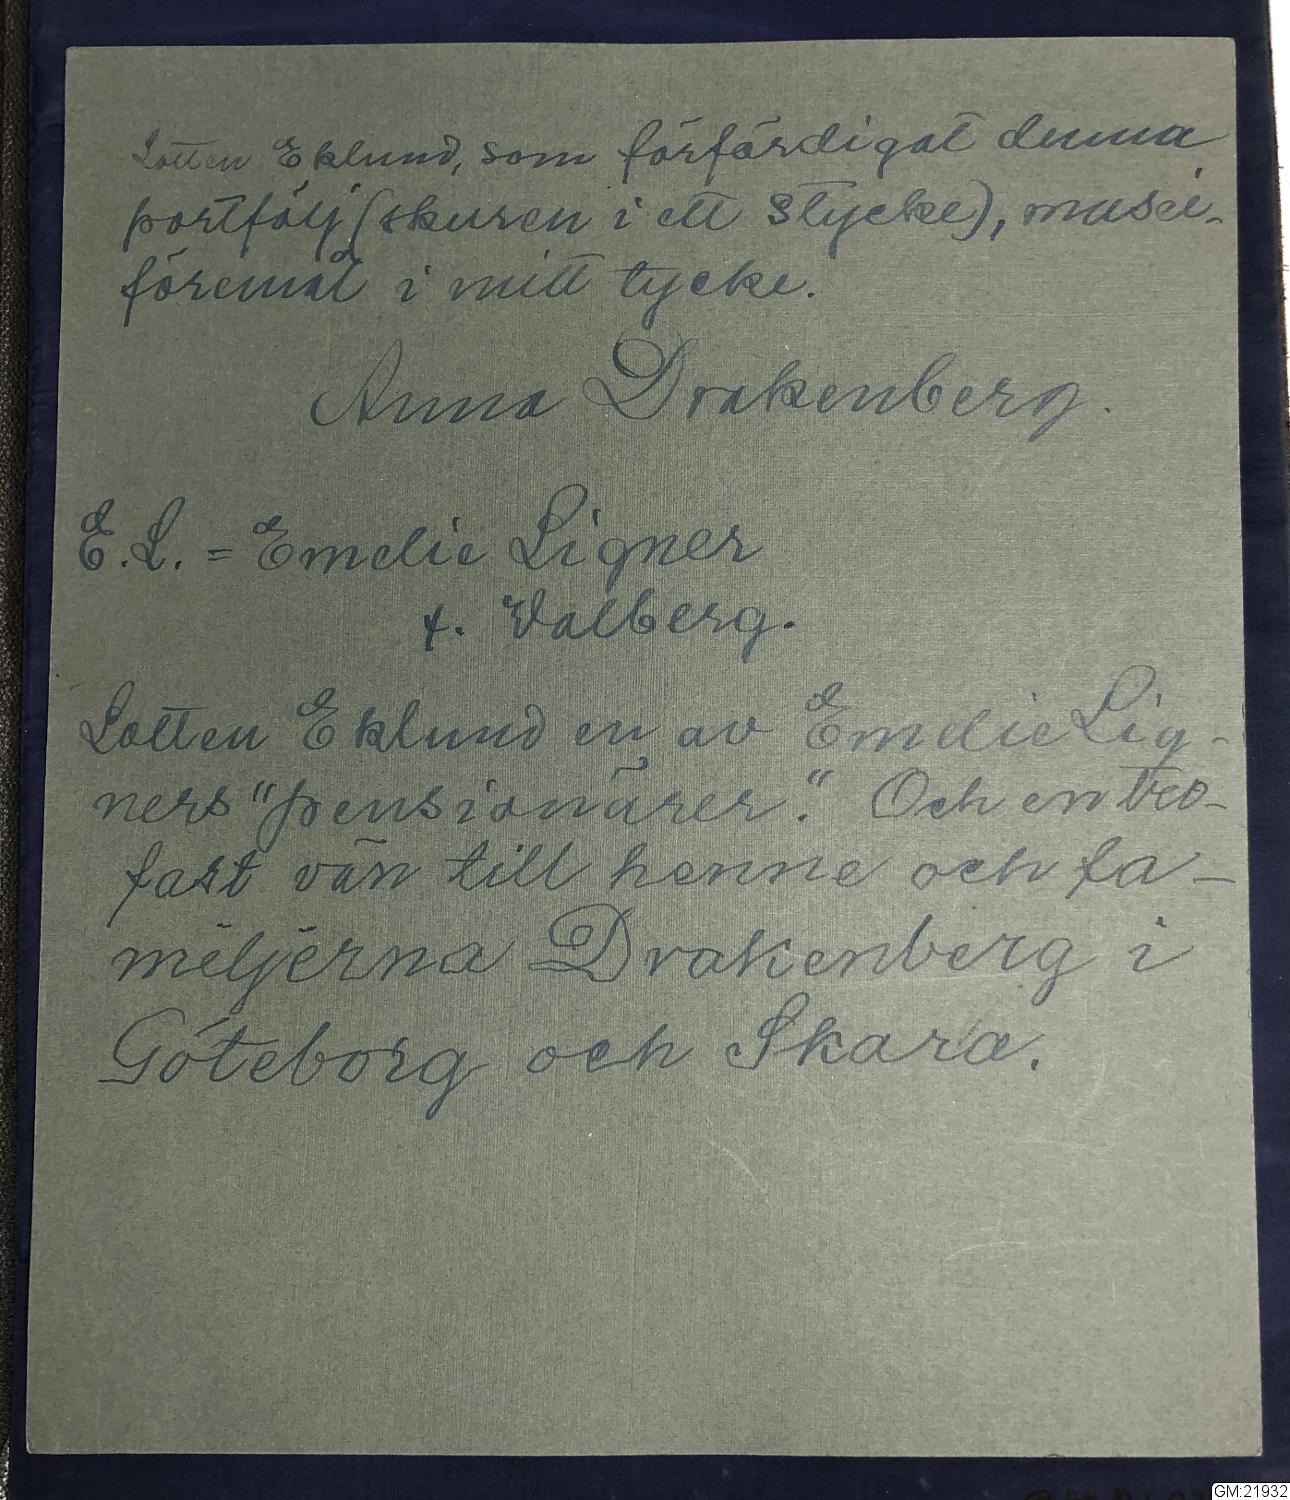 Lotten Eklund, som förfärdigat denna
portfölj (skuren i ett stycke), musei-
föremål i mitt tycke.
Anna Drakenberg.
E. L. = Emelie Ligner
f. Valberg.
Lotten Eklund en av Emelie Lig-
ners "pensionärer." Och en tro-
fast vän till henne och fa-
miljerna Drakenberg i
Göteborg och Skara.
GM:21932